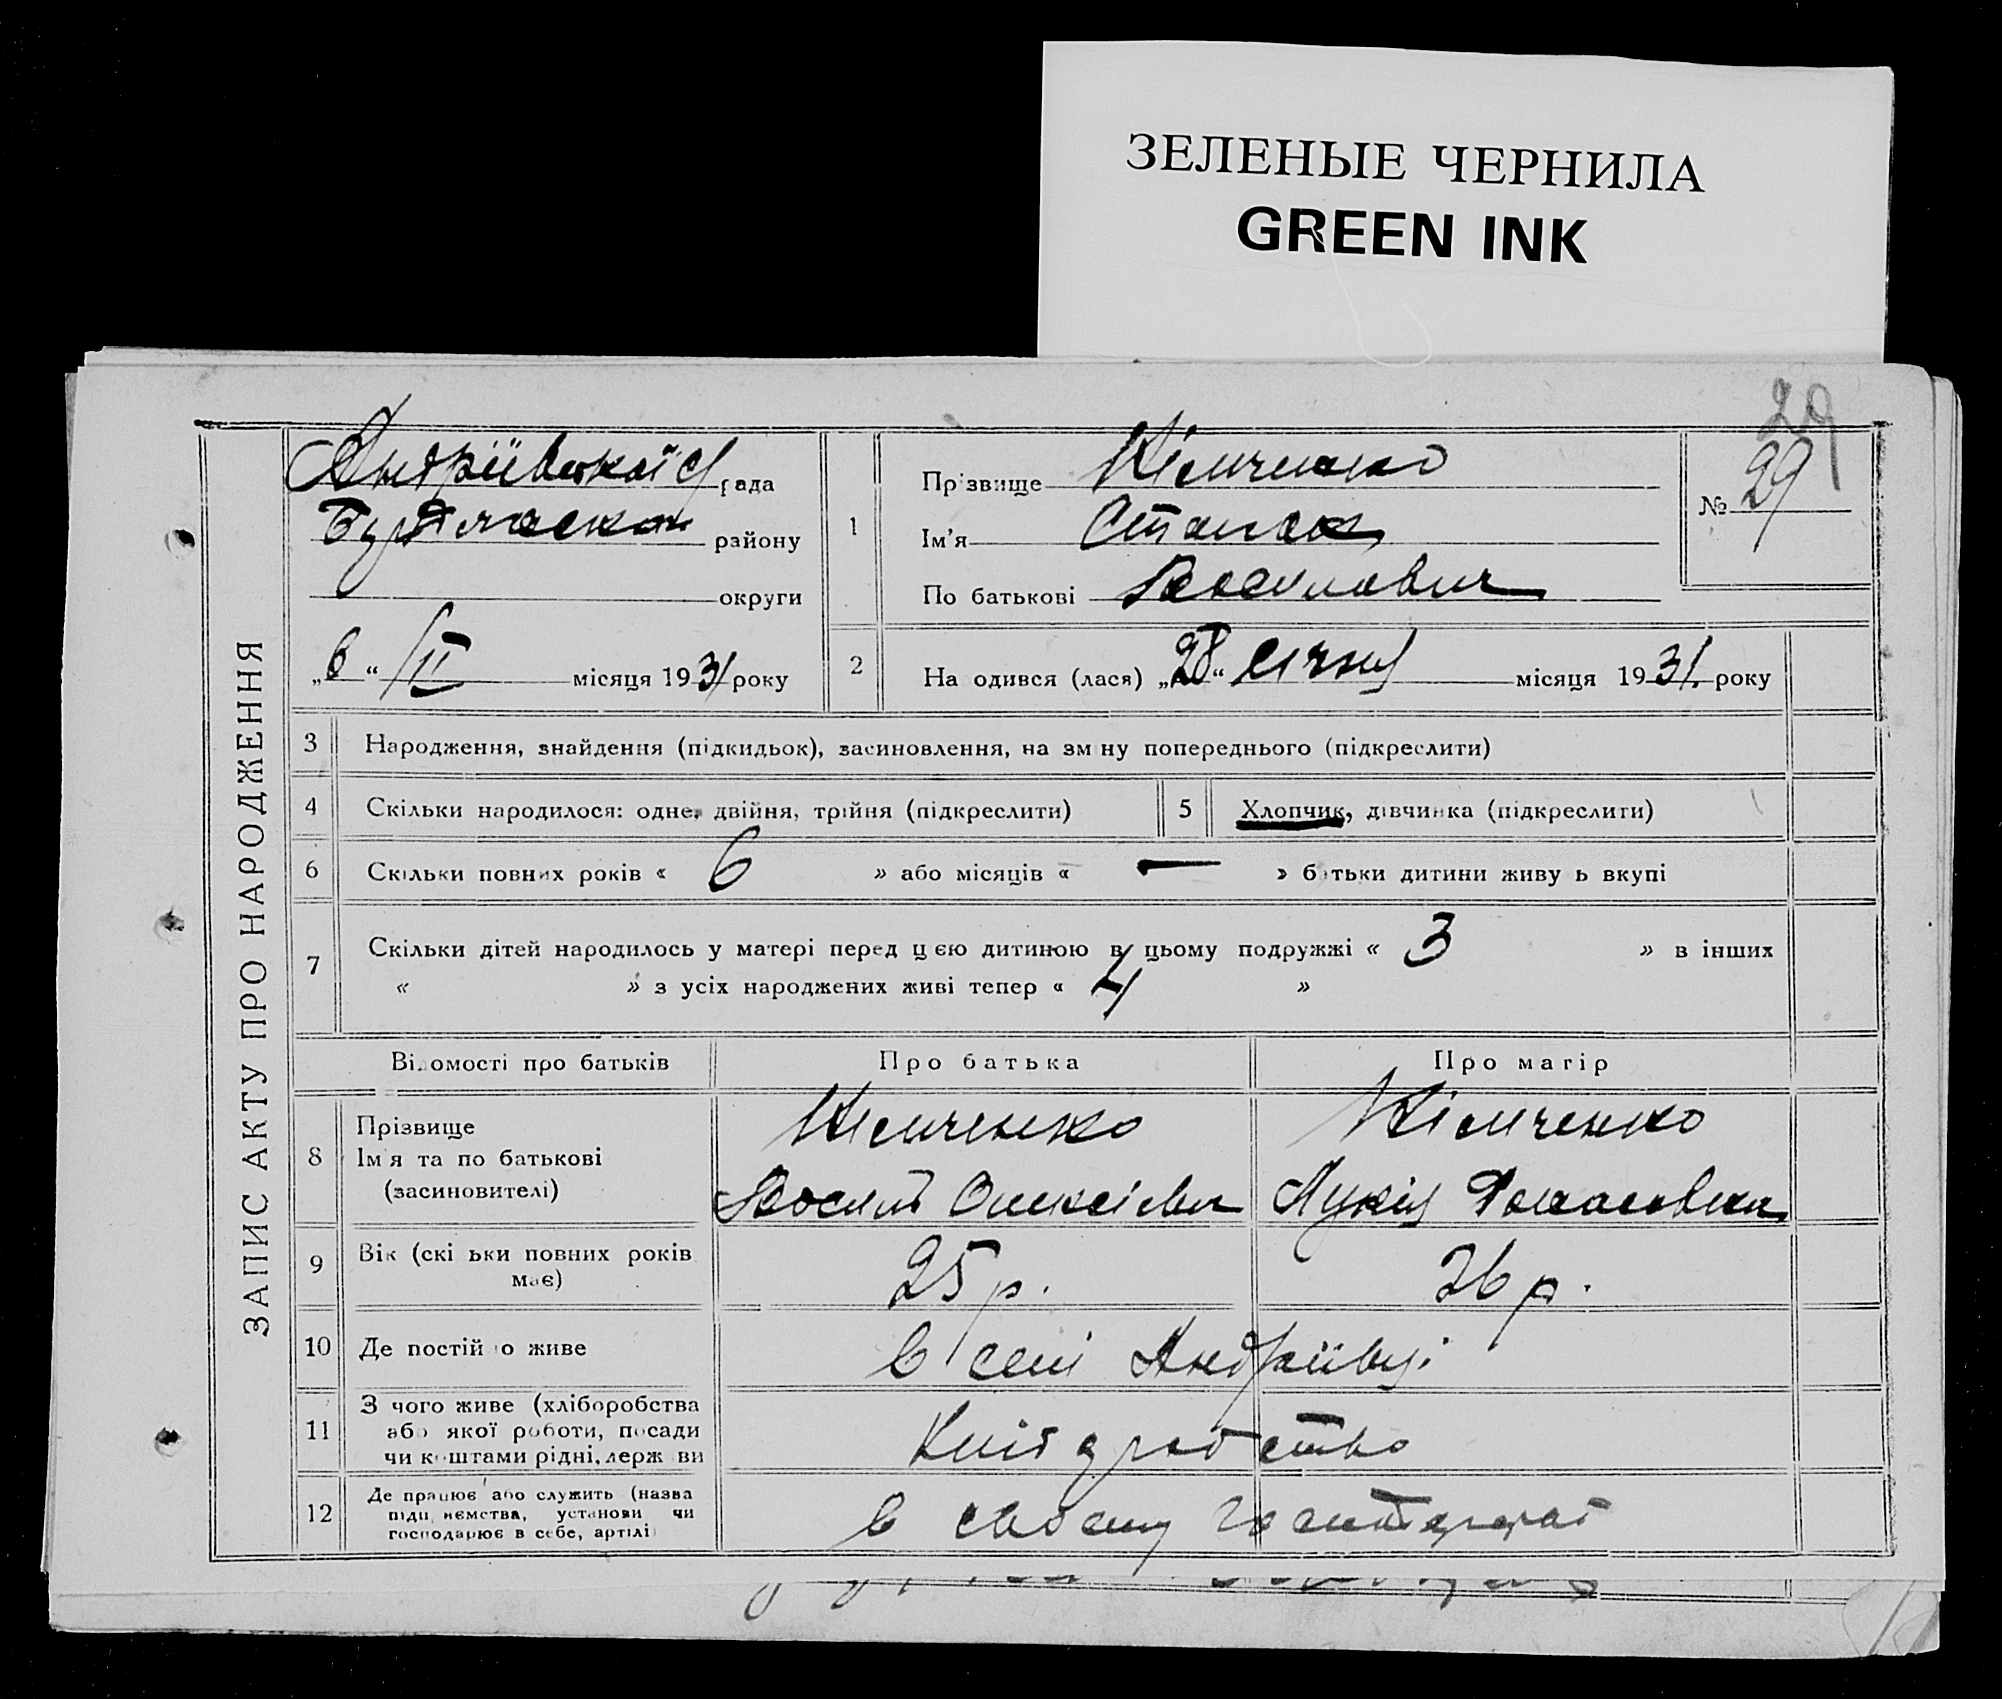 ЗЕЛЕНЫЕ ЧЕРНИЛА
GREEN INK
29
ЗАПИС АКТУ ПРО НАРОДЖЕННЯ
Андріївської с/рада
району
округи
„6“ /II місяця 1931 року
1
Прізвище Кімченко
Ім'я Степан
По батькові Васильович
№ 29
2 На одився (лася) „28“ січня місяця 1931. року
3 Народження, знайдення (підкидьок), засиновлення, на зм ну попереднього (підкреслити)
4 Скільки народилося: одне, двійня, трійня (підкреслити) 5 Хлопчик, дівчинка (підкреслити)
6 Скільки повних років « 6 » або місяців « — » батьки дитини живу ь вкупі
7 Скільки дітей народилось у матері перед цією дитиною в цьому подружжі « 3 » в інших
« » з усіх народжених живі тепер « 4 »
Відомості про батьків Про батька Про матір
8 Прізвище
Ім'я та по батькові
(засиновителі)
Кімченко Кімченко
Василь Олексієв Лукія
9 Вік (скі ьки повних років
має)
25 р. 26 р.
10 Де постій о живе в селі Андріївці
11 З чого живе (хліборобства
або якої роботи, посади
чи коштами рідні, держ ви
12 Де працює або служить (назва
підп иємства, установи чи
господарює в себе, артілі
в свойому